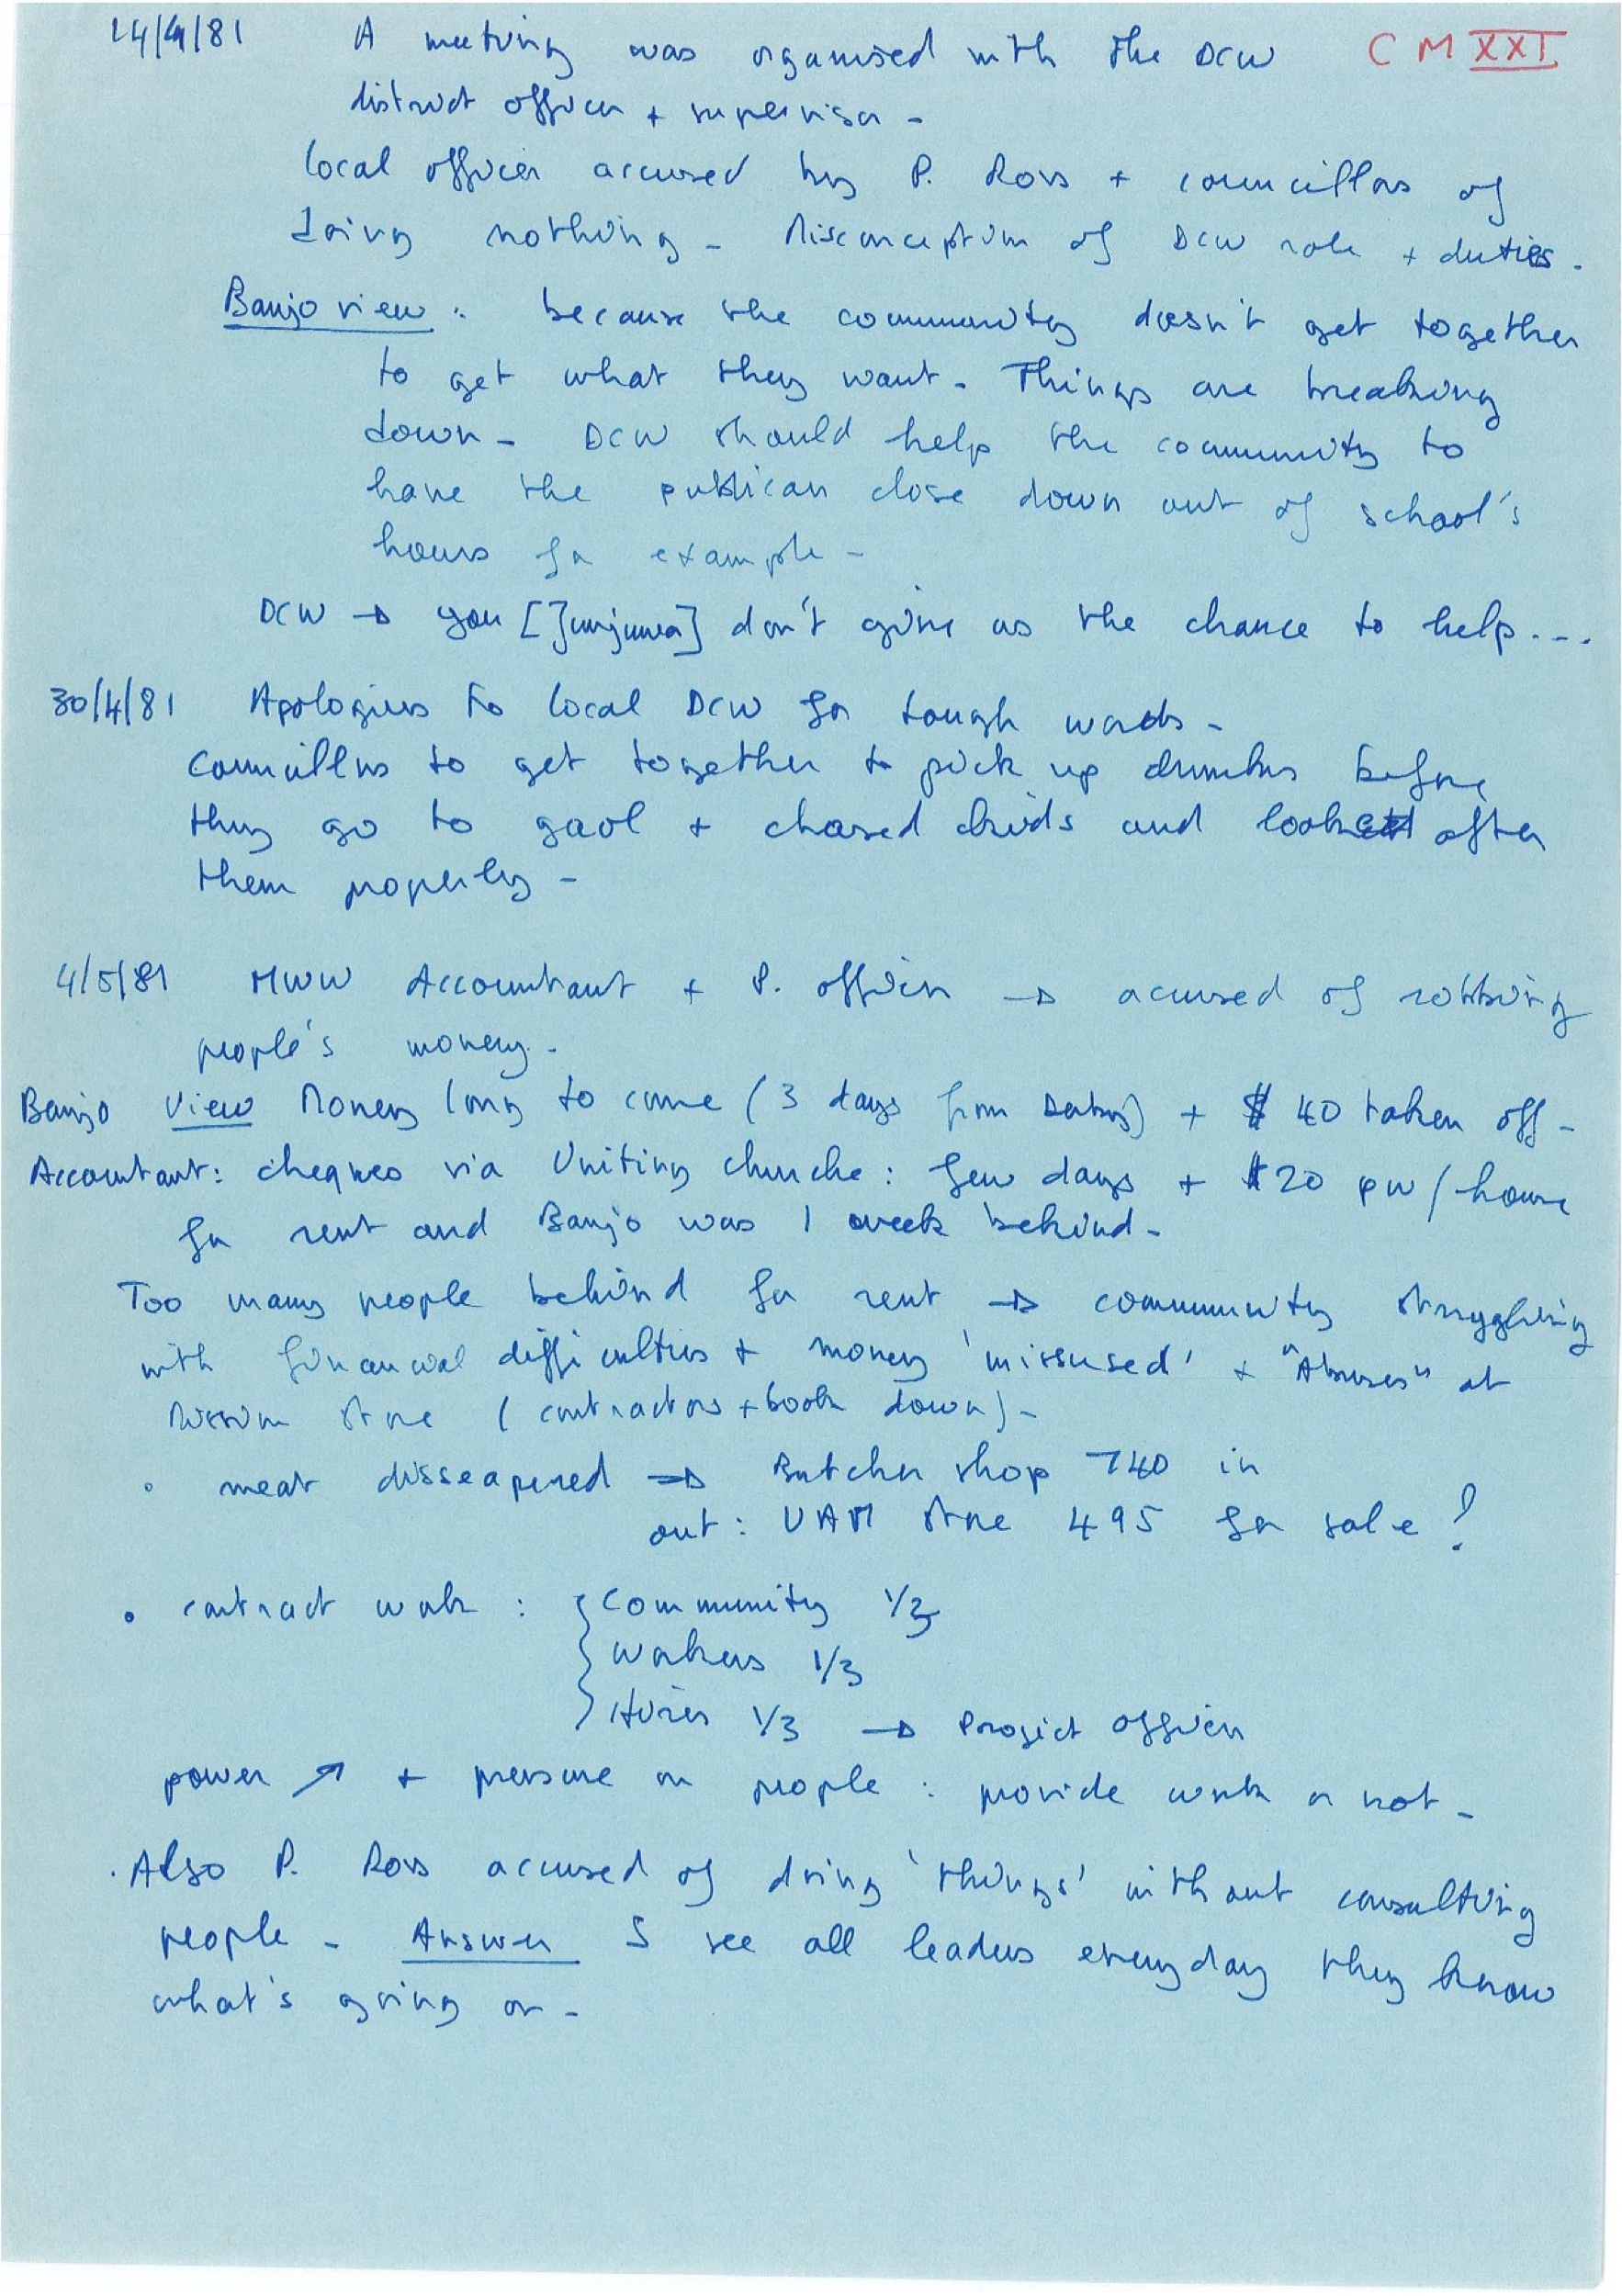 14/4/81 A meeting was organised with the DCW CM XXI
district officer + supervisor -
local officer accused by P. Ross + councillors of
doing nothing - Misconception of DCW role + duties.
Banjo view : because the community doesn't get together
to get what they want - Things are breaking
down - DCW should help the community to
have the publican close down out of school's
hours for example -
DCW → you [Junjuwa] don't give us the chance to help...
30/4/81 Apologies to local DCW for tough words -
Councillors to get together to pick up drunks before
they go to gaol + chased kids and looked after
them properly -
4/5/81 MWW Accountant + P. officer → acused of robbing
people's money.
Banjo view Money long to come (3 days from Derby) + $40 taken off -
Accountant: cheques via Uniting churche : few days + $20 pw/house
for rent and Banjo was 1 week behind -
Too many people behind for rent → community struggling
with financial difficulties + money 'missused' + "Abuses" at
Mission store (contractors + book down) -
• meat disseapered → Butcher shop 740 in
out : UAM store 495 for sale ?
• contract work : { Community 1/3
workers 1/3
Hirer 1/3 → Project officer
power ↗ + pressure on people : provide work or not -
. Also P. Ross accused of doing 'things' without consulting
people - Answer I see all leaders everyday they know
what's going on -